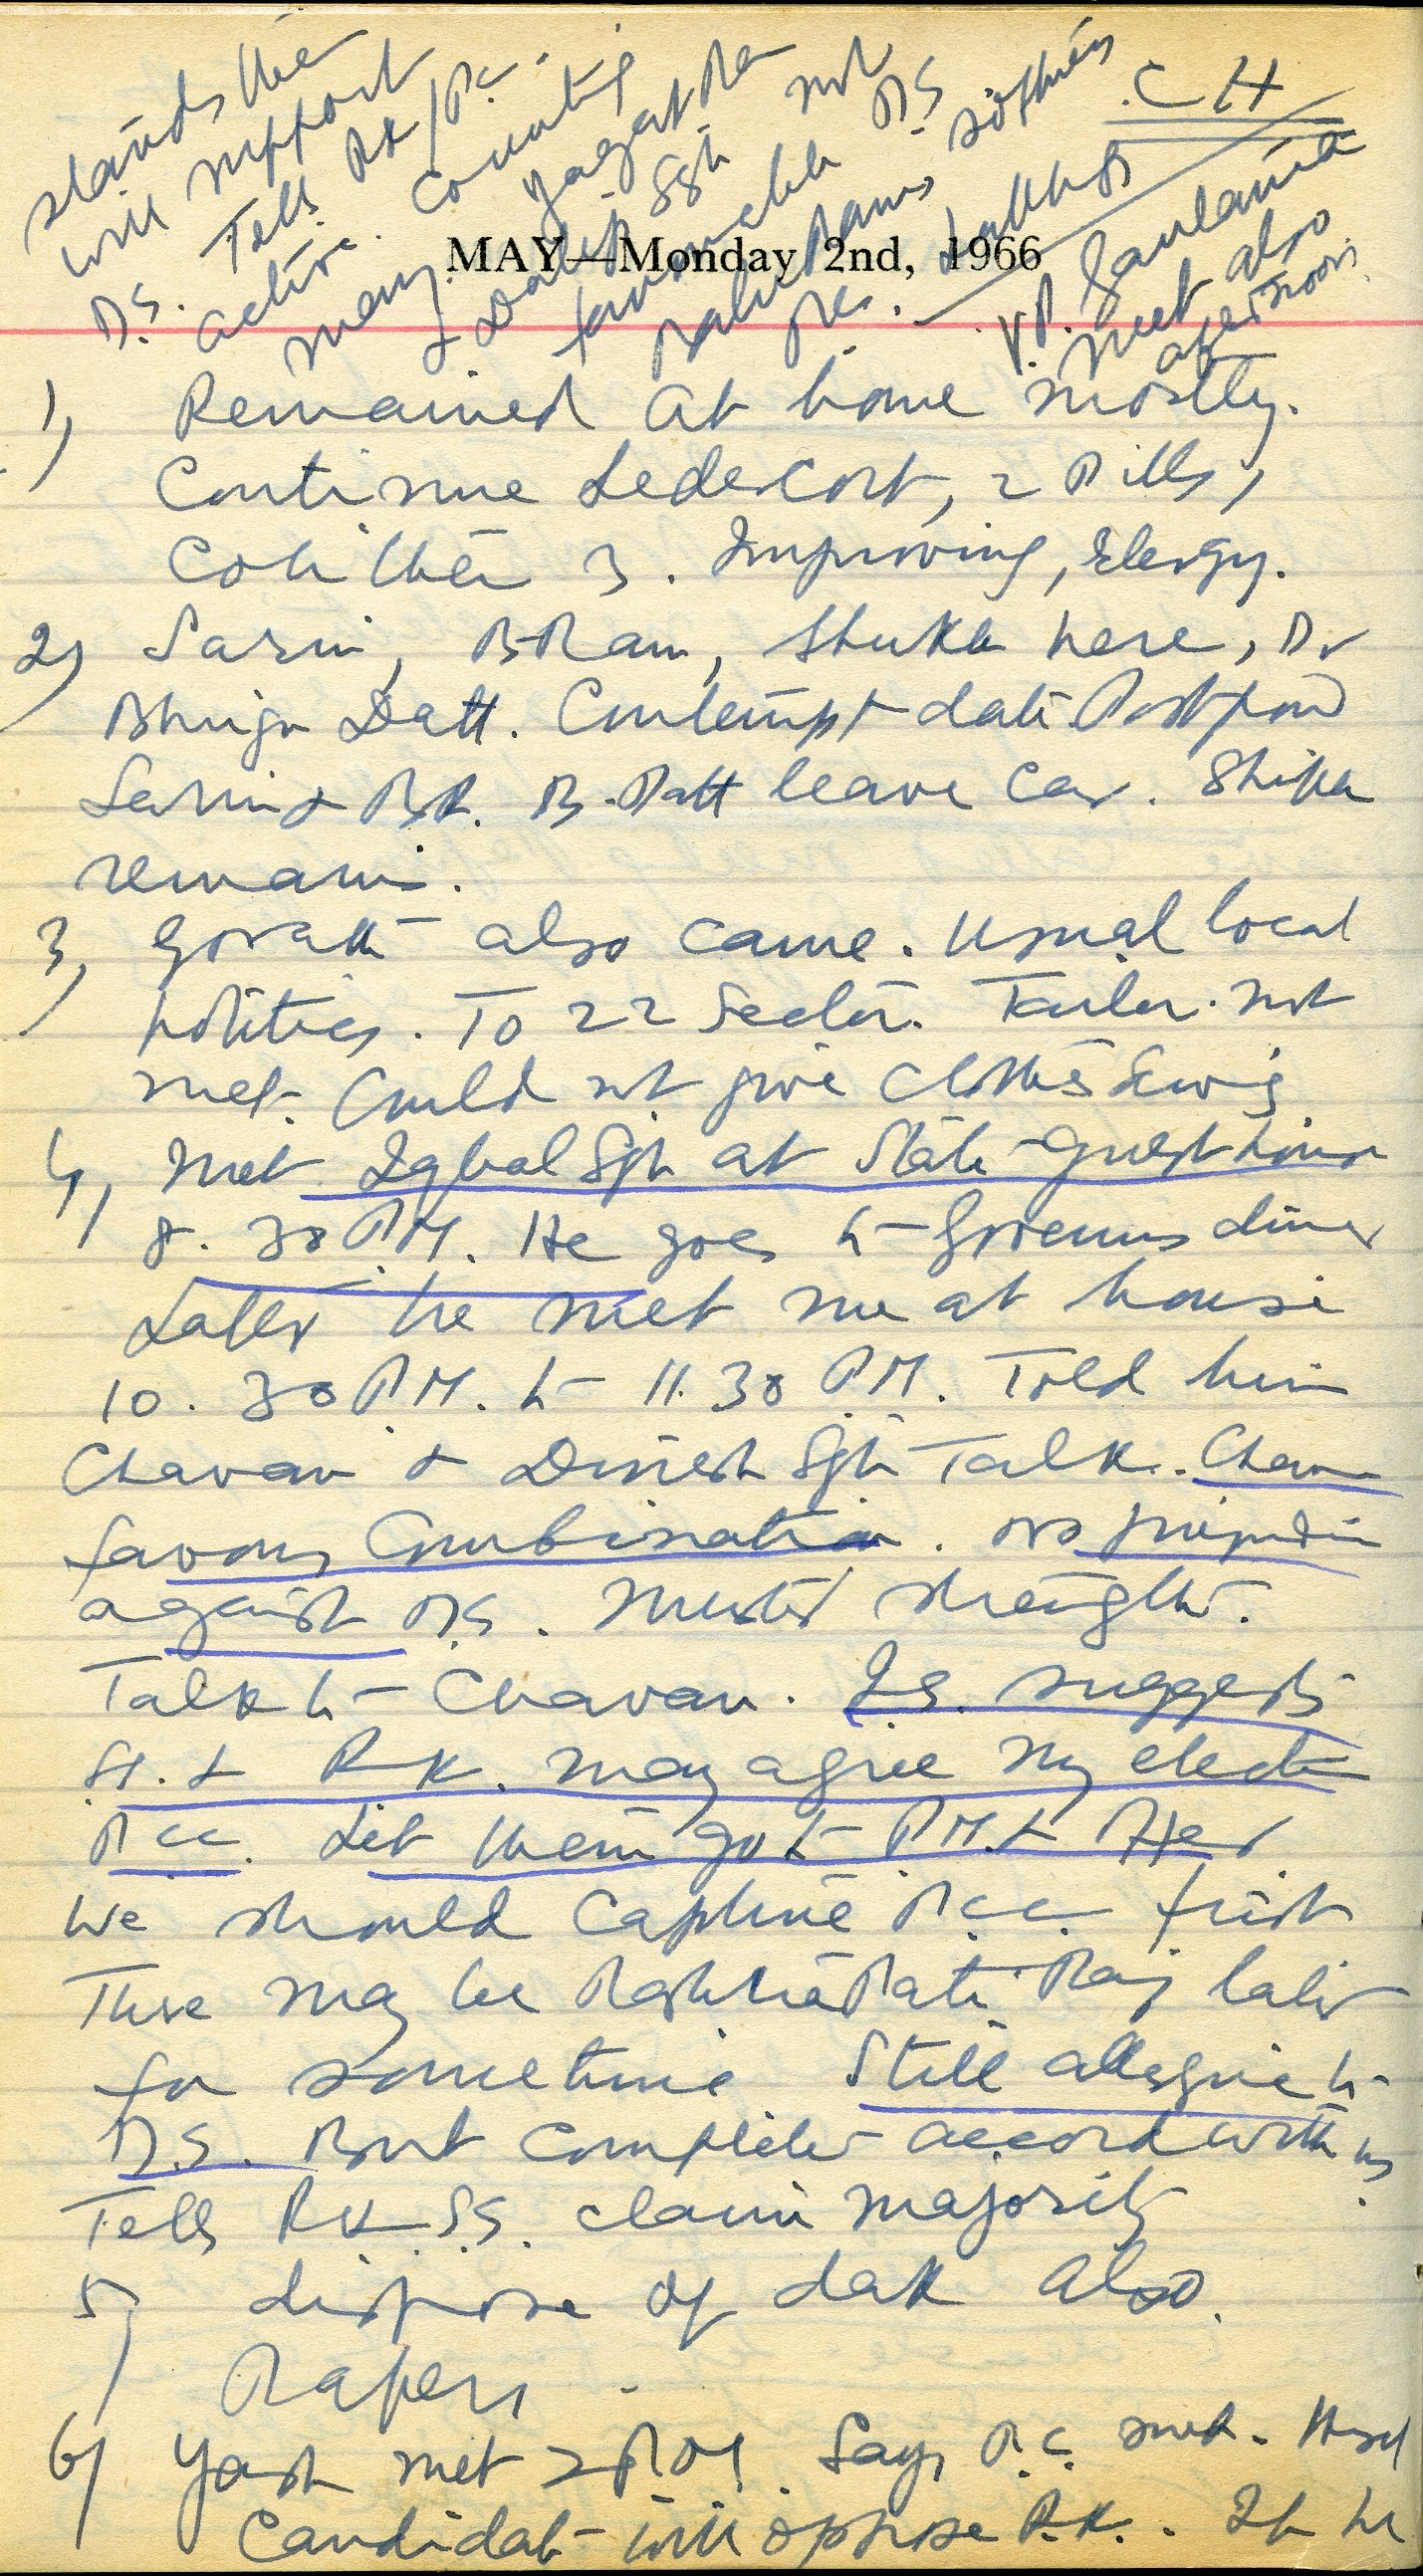 C H
MAY—Monday 2nd, 1966
1) Remained at home mostly.
Continue Ledercort, 2 Pills,
3. Improving, Elergy.
2) Sarin, B-Ram, Shukla here, Dr
Bhrigu Datt. Contempt date Postpond
Sarin & B.R. B. Datt leave Car.
remain.
3, also came. Usual local
politics. To 22 Sector. Tailor not
met. Could not give Clothes Sewing
4, Met Iqbal Sgh at State Guest house
8.30 P.M. He goes to Governors dinner
Later he met me at house
10.30 P.M. to 11.30 P.M. Told him
Chavan & Dinesh Sgh Talk. Chavan
favours Combination. no prejudice
against D.S. Muster strength.
Talk to Chavan. I.S. suggests
& R.K. may agree my election
P.C.C. Let them go to P.M. &
We should Capture P.C.C. first
There may be RashtraPati Raj later
for sometime Still allegience to
D.S. But complete accord with us.
Tells R.K. S.S. claim majority
5) dispose of dak also.
Papers
6) Yash met 2 P.M. Says P.C. met.
Candidate will oppose R.K. If he
stands then
will support
D.S. Tells RK/P.C.
active. Counting
many. Jagat
& Dalip Sgh not
favourable D.S.
V.P. Gautama
meet also
afternoon